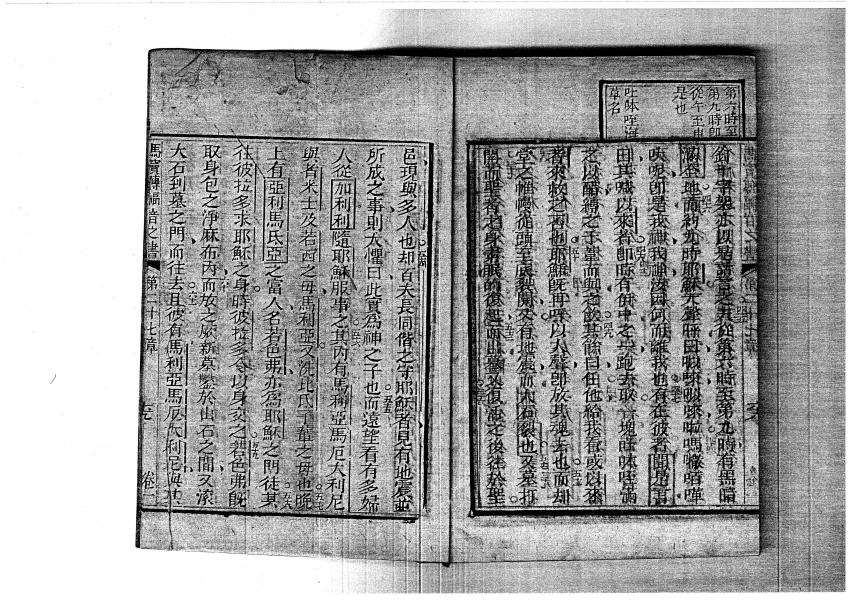 第六時至
第九時即
從午至申
是也
草名
十字架亦以是謗言之且從第六時至第九時有黑暗
地而約九時耶穌大聲呼曰
即是我神我神汝因何而離我也有在彼者聞是言
曰其喊以來者即時有伊中之一跑去取一塊
之以醋縛之于葦而與之飲其餘曰任他給我看或以來
者來救之否也耶穌既再呼以大聲即放其魂去也而却
堂之帷幔從頭至底裂開又有地震而大石裂也又墓打
開而聖者之身著眠的復起而出墓復活之後徃於聖
邑現與多人也却百夫長同偕之守耶穌者見有地震並
所成之事則大懼曰此實為神之子也而遠望看有多婦
人從加利利隨耶穌服事之其內有馬利亞馬厄大利尼
與者米士及若西之母馬利亞又洗比氐子輩之母也晚
上有亞利馬氐亞之富人名若色弗亦為耶穌之門徒其
往彼拉多求耶穌之身時彼拉多令以身交之若色弗既
取身包之淨麻布內而放之厥新墓鑿於山石之間又滚
大石到墓之門而往去且彼有馬利亞馬厄大利尼與其
馬竇傳福音之書 第二十七章 卷一